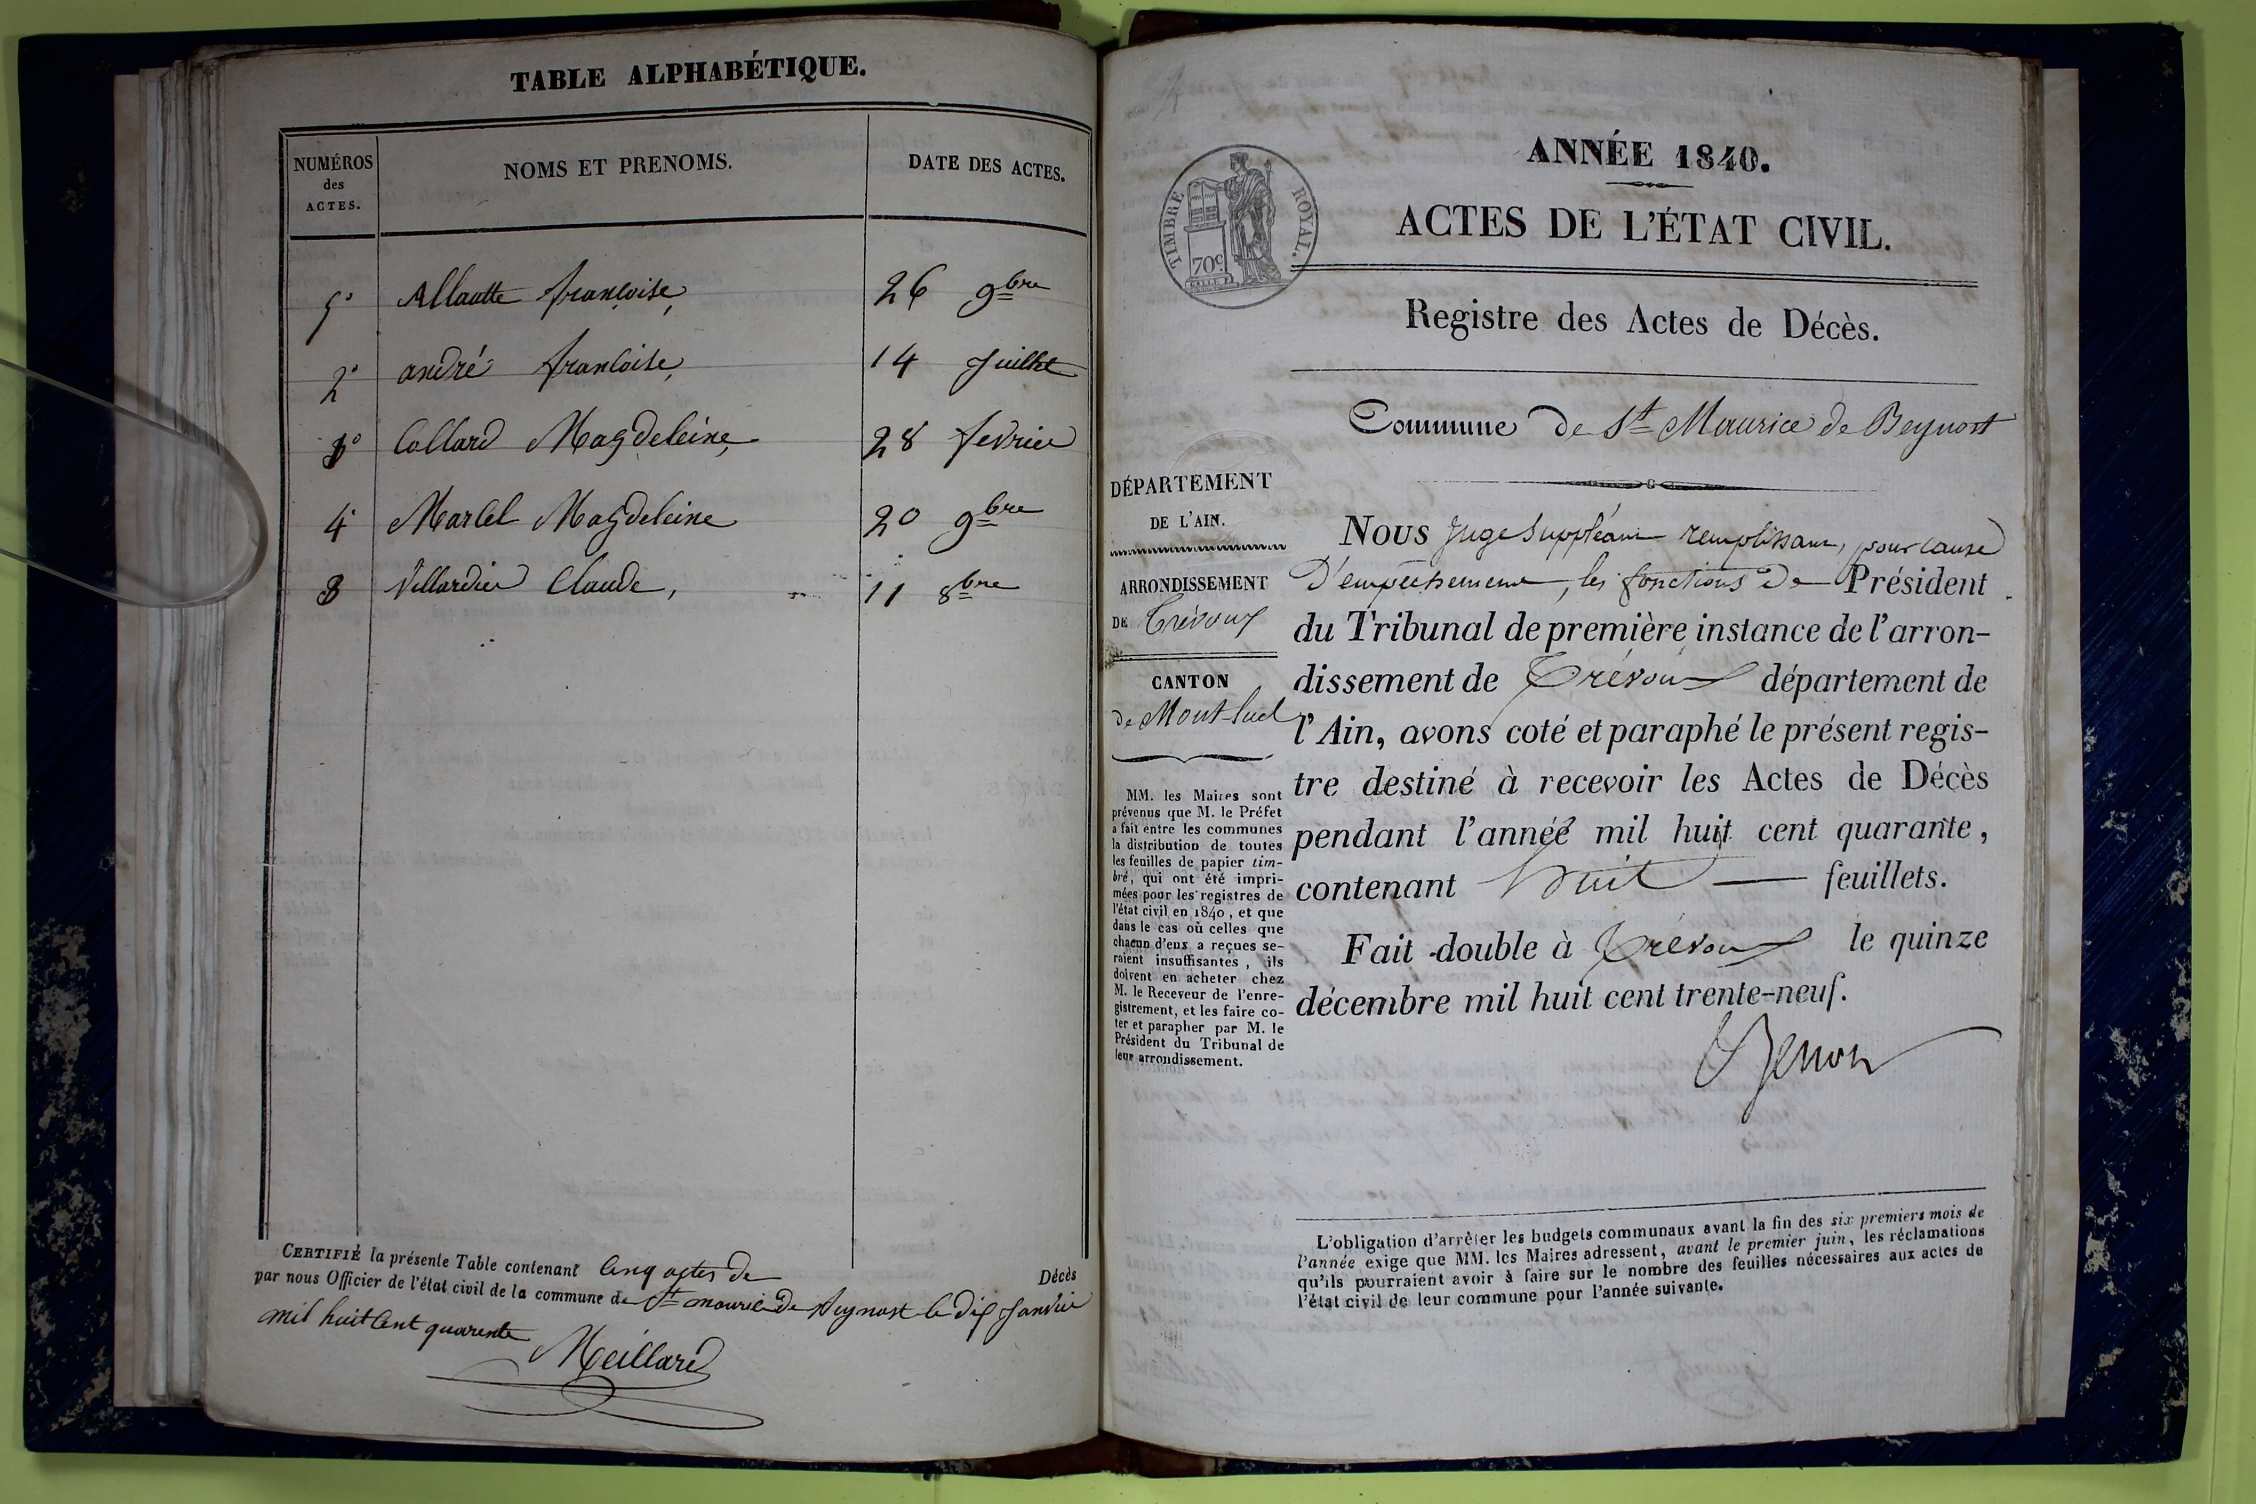 TABLE ALPHABÉTIQUE.
NUMÉROS
des
ACTES.
NOMS ET PRENOMS.
DATE DES ACTES.
5° Allautte françoise, 26 9bre
2° andré françoise, 14 Juillet
1° Collard Magdeleine, 28 fevrier
4° Marcel Magdeleine 20 9bre
3 Villardier Claude, 11 8bre
CERTIFIÉ la présente Table contenant Cinq actes de Décès
par nous Officier de l'état civil de la commune de St mauric de Beynost le dix Janvier
mil huit Cent quarente
Meillard
TIMBRE ROYAL.
70c.
ANNÉE 1840.
ACTES DE L'ÉTAT CIVIL.
Registre des Actes de Décès.
Commune de St Maurice de Beynost
DÉPARTEMENT
DE L'AIN.
ARRONDISSEMENT
DE Trévoux
CANTON
de Montluel
MM. les Maires sont
prévenus que M. le Préfet
a fait entre les communes
la distribution de toutes
les feuilles de papier tim-
bré, qui ont été impri-
mées pour les registres de
l'état civil en 1840, et que
dans le cas où celles que
chacun d'eux a reçues se-
raient insuffisantes, ils
doivent en acheter chez
M. le Receveur de l'enre-
gistrement, et les faire co-
ter et parapher par M. le
Président du Tribunal de
leur arrondissement.
Nous Juge Suppléant remplissant, pour cause
D'empêchement, les fonctions de Président
du Tribunal de première instance de l'arron-
dissement de Trévoux département de
l'Ain, avons coté et paraphé le présent regis-
tre destiné à recevoir les Actes de Décès
pendant l'année mil huit cent quarante,
contenant huit feuillets.
Fait double à Trévoux le quinze
décembre mil huit cent trente-neuf.
L'obligation d'arrêter les budgets communaux avant la fin des six premiers mois de
l'année exige que MM. les Maires adressent, avant le premier juin, les réclamations
qu'ils pourraient avoir à faire sur le nombre des feuilles nécessaires aux actes de
l'état civil de leur commune pour l'année suivante.